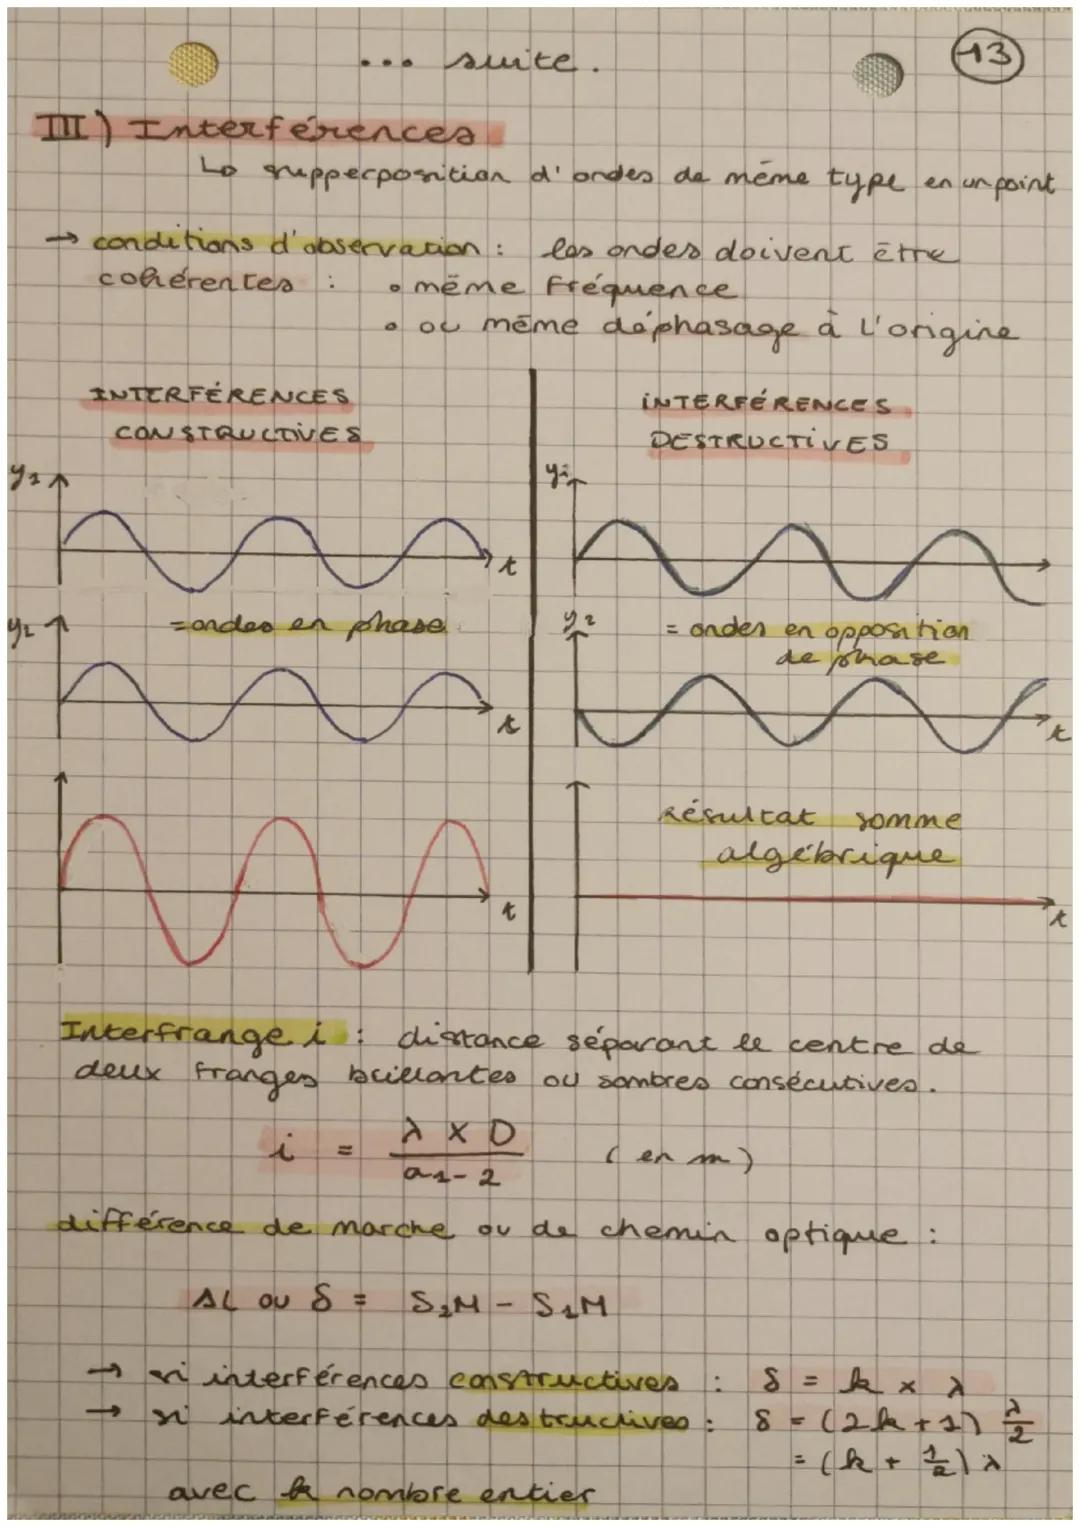 ... suite.
13
III) Interférences
↳ supperposition d'ondes de même type en un point
→ conditions d'observation : les ondes doivent être
cohérentes : • même fréquence
• ou même déphasage à l'origine
INTERFÉRENCES
CONSTRUCTIVES
INTERFÉRENCES
DESTRUCTIVES
y1
t
y1
y2
= ondes en phase
t
y2
= ondes en opposition
de phase
t
t
Résultat somme
algébrique
t
Interfrange i : distance séparant le centre de
deux franges brillantes ou sombres consécutives.
i = λ × D / a1-2 (en m)
différence de marche ou de chemin optique :
ΔL ou δ = S2M - S1M
→ si interférences constructives : δ = k × λ
→ si interférences destructives : δ = (2k + 1) λ/2
= (k + 1/2) λ
avec k nombre entier